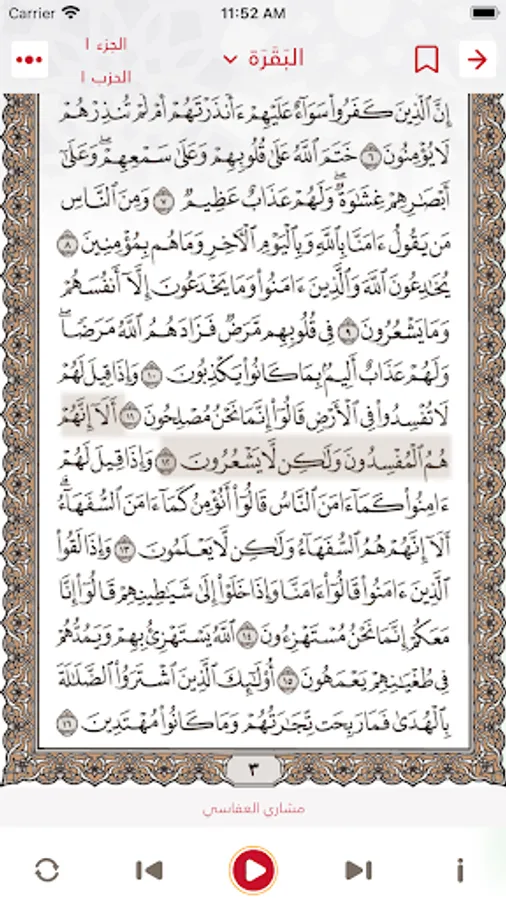 Carrier 11:52 AM
الجزء ١
البَقَرَة
الحزب ١
إِنَّ ٱلَّذِينَ كَفَرُوا۟ سَوَآءٌ عَلَيْهِمْ ءَأَنذَرْتَهُمْ أَمْ لَمْ تُنذِرْهُمْ
لَا يُؤْمِنُونَ ٦ خَتَمَ ٱللَّهُ عَلَىٰ قُلُوبِهِمْ وَعَلَىٰ سَمْعِهِمْ ۖ وَعَلَىٰٓ
أَبْصَـٰرِهِمْ غِشَـٰوَةٌ ۖ وَلَهُمْ عَذَابٌ عَظِيمٌ ٧ وَمِنَ ٱلنَّاسِ
مَن يَقُولُ ءَامَنَّا بِٱللَّهِ وَبِٱلْيَوْمِ ٱلْـَٔاخِرِ وَمَا هُم بِمُؤْمِنِينَ ٨
يُخَـٰدِعُونَ ٱللَّهَ وَٱلَّذِينَ ءَامَنُوا۟ وَمَا يَخْدَعُونَ إِلَّآ أَنفُسَهُمْ
وَمَا يَشْعُرُونَ ٩ فِى قُلُوبِهِم مَّرَضٌ فَزَادَهُمُ ٱللَّهُ مَرَضًا ۖ
وَلَهُمْ عَذَابٌ أَلِيمٌۢ بِمَا كَانُوا۟ يَكْذِبُونَ ١٠ وَإِذَا قِيلَ لَهُمْ
لَا تُفْسِدُوا۟ فِى ٱلْأَرْضِ قَالُوٓا۟ إِنَّمَا نَحْنُ مُصْلِحُونَ ١١ أَلَآ إِنَّهُمْ
هُمُ ٱلْمُفْسِدُونَ وَلَـٰكِن لَّا يَشْعُرُونَ ١٢ وَإِذَا قِيلَ لَهُمْ
ءَامِنُوا۟ كَمَآ ءَامَنَ ٱلنَّاسُ قَالُوٓا۟ أَنُؤْمِنُ كَمَآ ءَامَنَ ٱلسُّفَهَآءُ ۗ
أَلَآ إِنَّهُمْ هُمُ ٱلسُّفَهَآءُ وَلَـٰكِن لَّا يَعْلَمُونَ ١٣ وَإِذَا لَقُوا۟
ٱلَّذِينَ ءَامَنُوا۟ قَالُوٓا۟ ءَامَنَّا وَإِذَا خَلَوْا۟ إِلَىٰ شَيَـٰطِينِهِمْ قَالُوٓا۟ إِنَّا
مَعَكُمْ إِنَّمَا نَحْنُ مُسْتَهْزِءُونَ ١٤ ٱللَّهُ يَسْتَهْزِئُ بِهِمْ وَيَمُدُّهُمْ
فِى طُغْيَـٰنِهِمْ يَعْمَهُونَ ١٥ أُو۟لَـٰٓئِكَ ٱلَّذِينَ ٱشْتَرَوُا۟ ٱلضَّلَـٰلَةَ
بِٱلْهُدَىٰ فَمَا رَبِحَت تِّجَـٰرَتُهُمْ وَمَا كَانُوا۟ مُهْتَدِينَ ١٦
٣
مشاري العفاسي